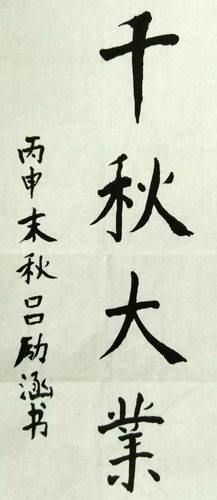 千秋大業
丙申末秋吕励涵书